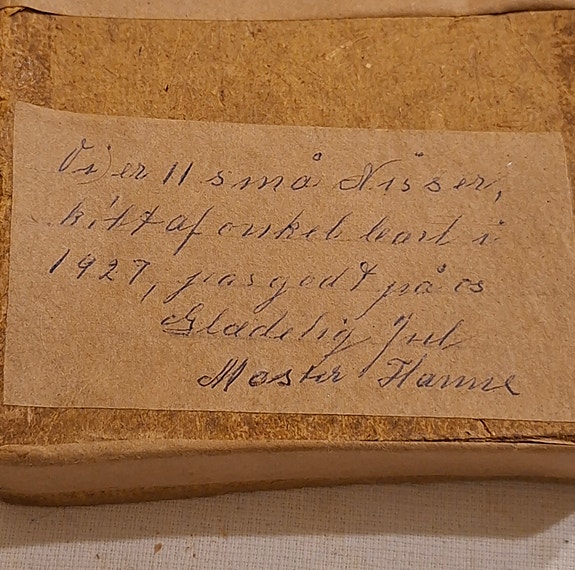 Vi er 11 små Nisser,
klift af onkel kart i
1927, pas godt på os
Glædelig Jul
Moster Hanne